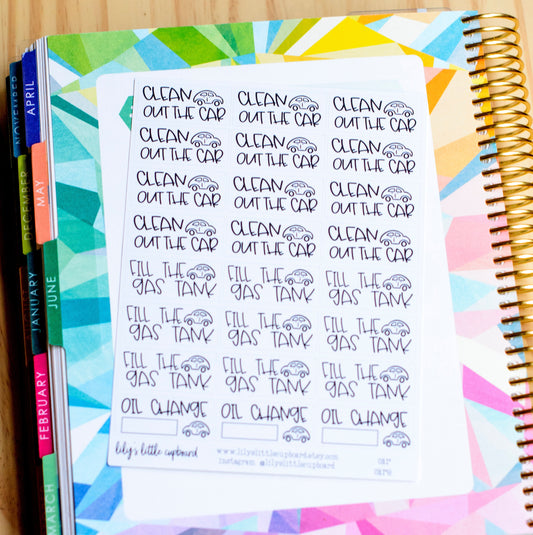 NOVEMBER
DECEMBER
JANUARY
FEBRUARY
MARCH
APRIL
MAY
JUNE
CLEAN CLEAN CLEAN
OUT THE CAR OUT THE CAR OUT THE CAR
CLEAN CLEAN CLEAN
OUT THE CAR OUT THE CAR OUT THE CAR
CLEAN CLEAN CLEAN
OUT THE CAR OUT THE CAR OUT THE CAR
CLEAN CLEAN CLEAN
OUT THE CAR OUT THE CAR OUT THE CAR
FILL THE FILL THE FILL THE
GAS TANK GAS TANK GAS TANK
FILL THE FILL THE FILL THE
GAS TANK GAS TANK GAS TANK
FILL THE FILL THE FILL THE
GAS TANK GAS TANK GAS TANK
OIL CHANGE OIL CHANGE OIL CHANGE
lily's little cupboard
www.lilyslittlecupboard.etsy.com
instagram @lilyslittlecupboard
car
care